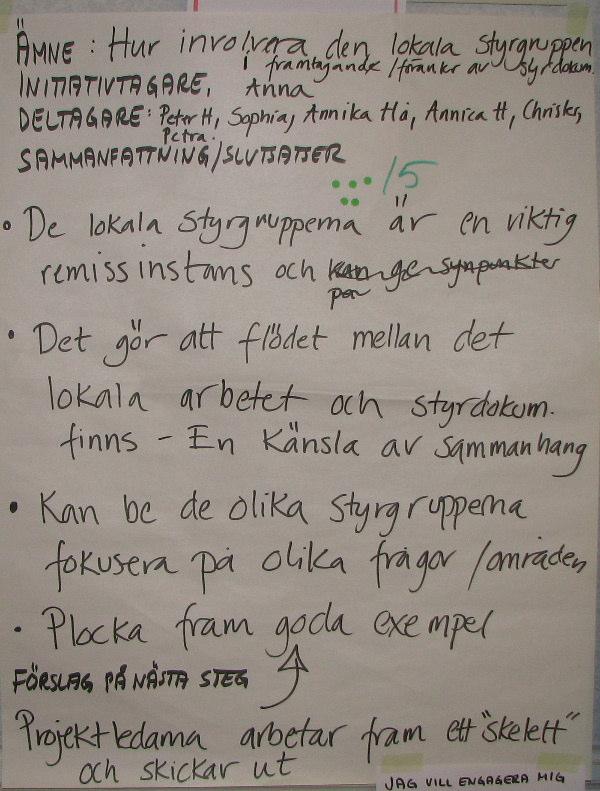 ÄMNE: Hur involvera den lokala styrgruppen
i framtagande /förankr av styrdokum.
INITIATIVTAGARE, Anna
DELTAGARE: Peter H, Sophia, Annika Hå, Annica H, Christer,
Petra.
SAMMANFATTNING/SLUTSATSER
/5
• De lokala styrgrupperna är en viktig
remissinstans och kan ge synpunkter
på
• Det gör att flödet mellan det
lokala arbetet och styrdokum.
finns - En känsla av sammanhang
• Kan be de olika styrgrupperna
fokusera på olika frågor /områden
• Plocka fram goda exempel
FÖRSLAG PÅ NÄSTA STEG
Projektledarna arbetar fram ett "skelett"
och skickar ut
JAG VILL ENGAGERA MIG